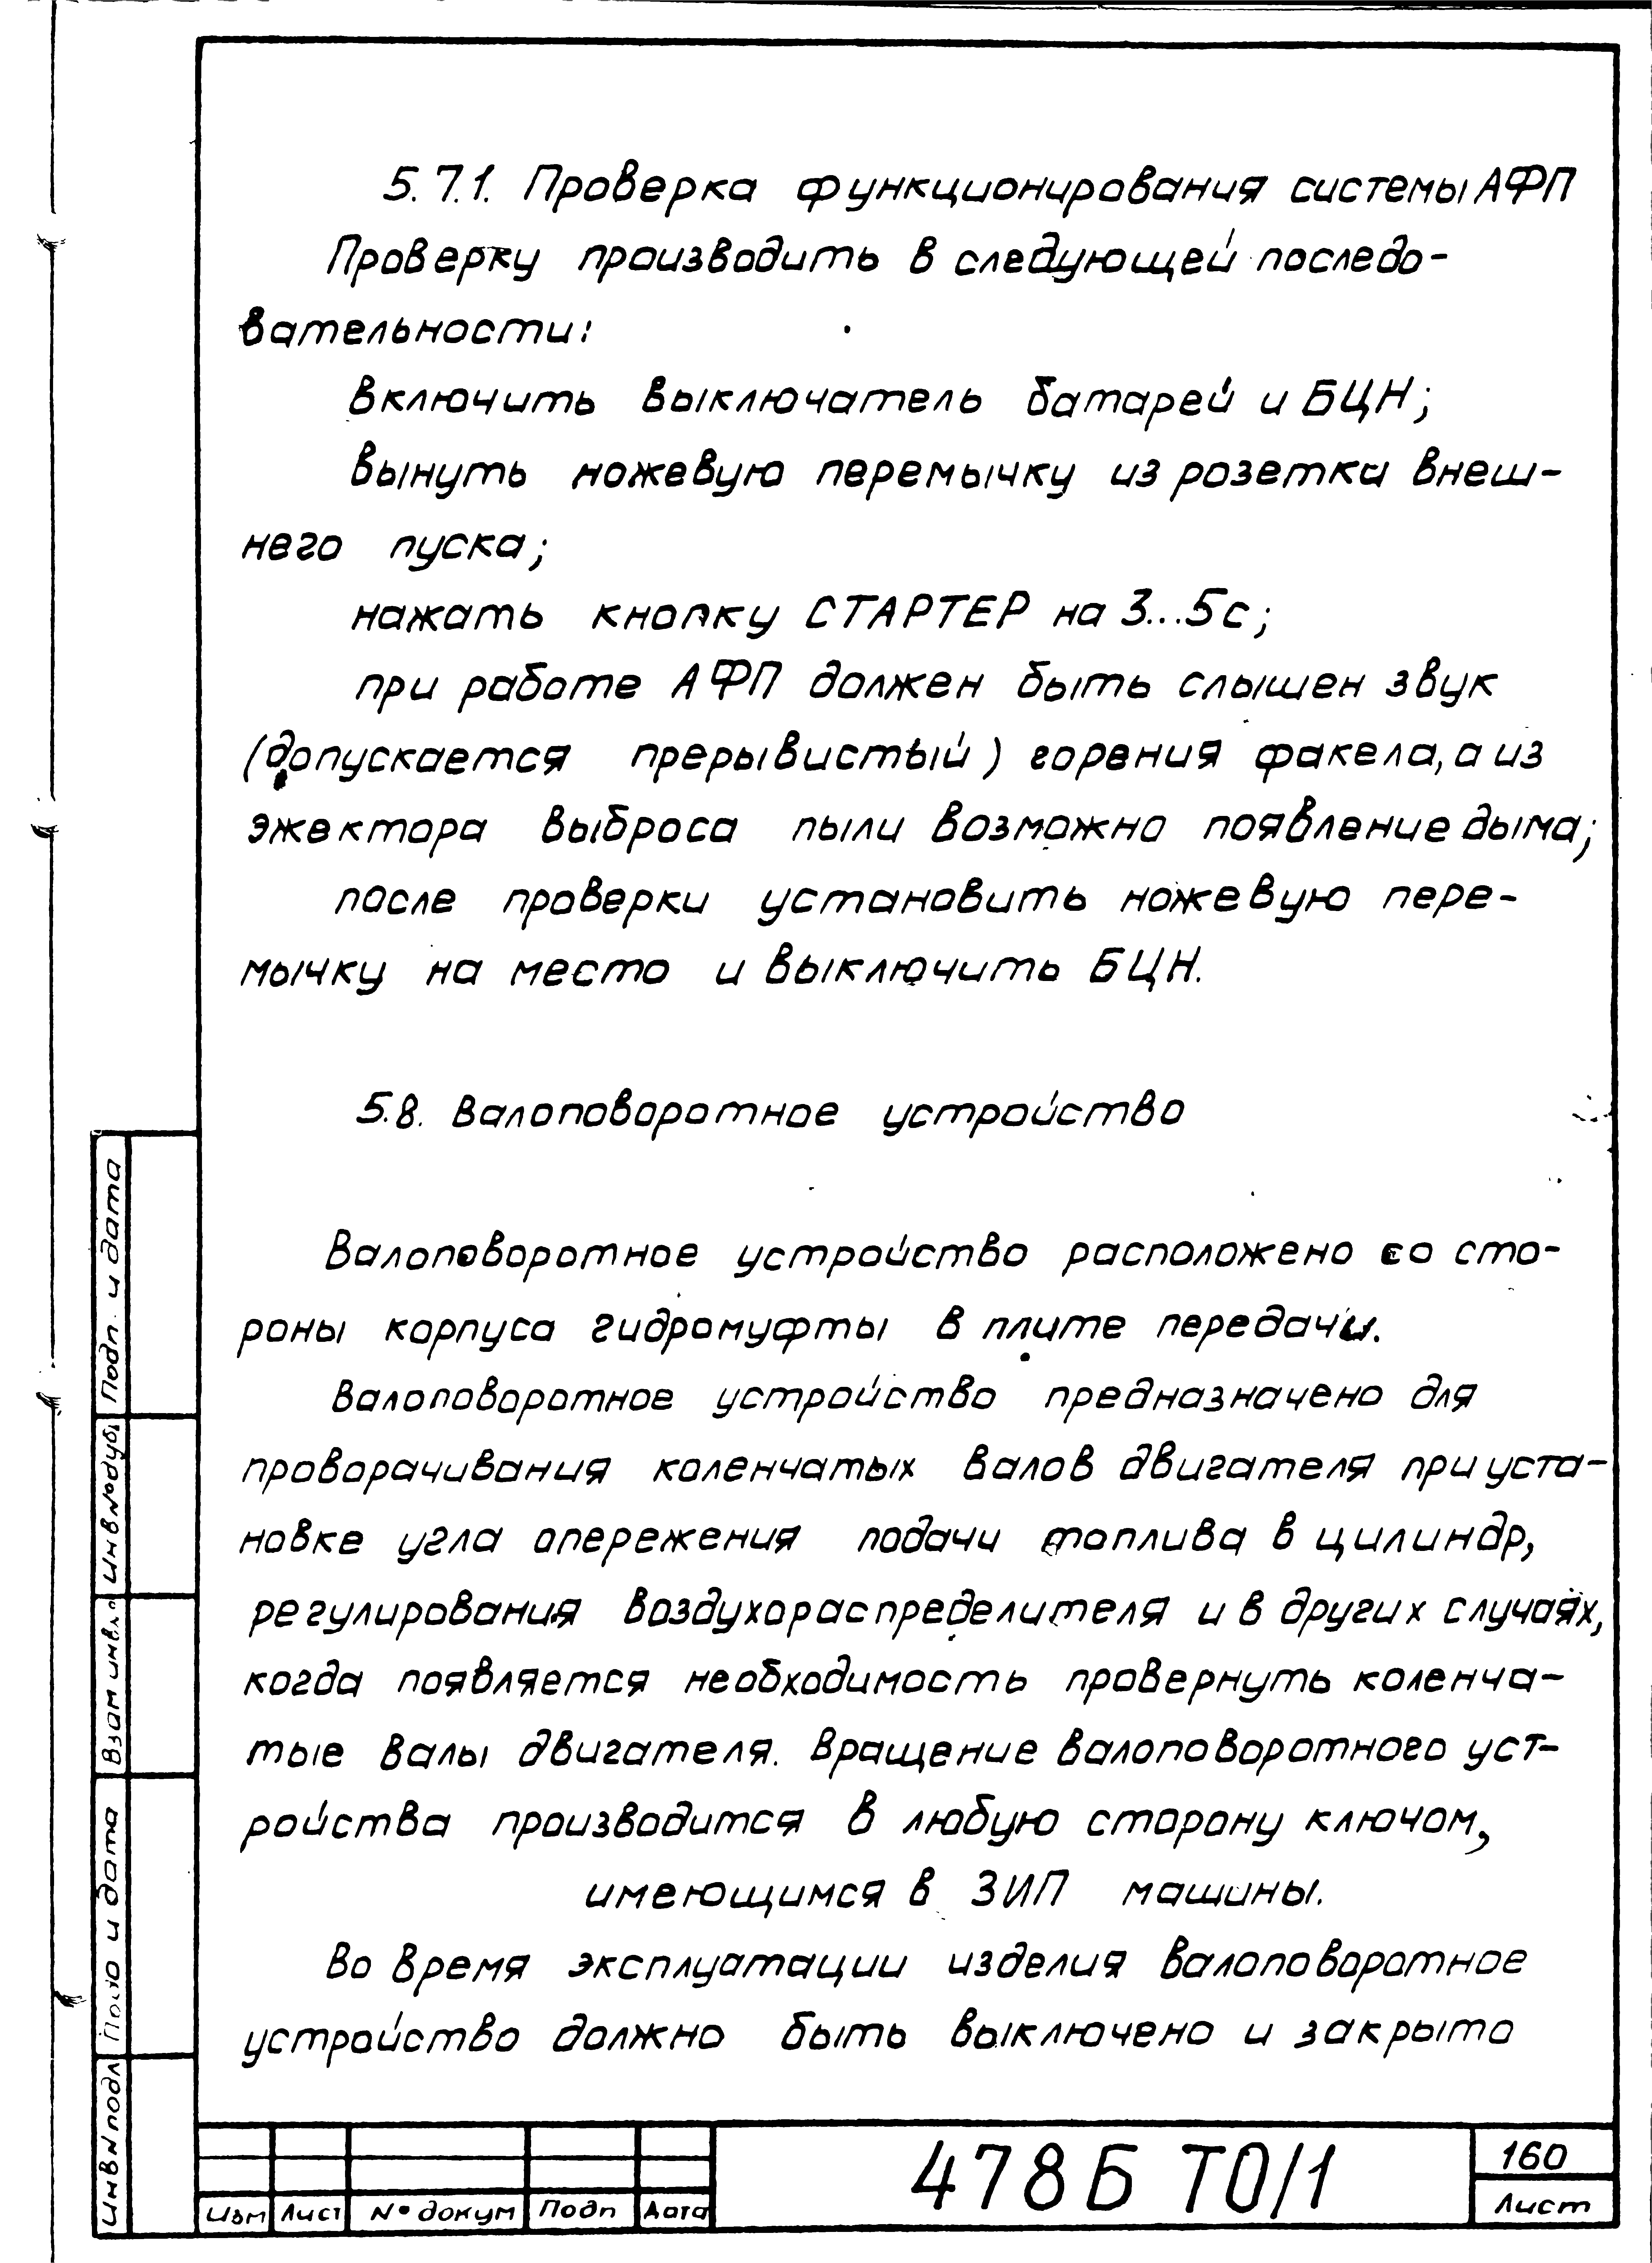 5.7.1. Проверка функционирования системы АФП
Проверку производить в следующей последо-
вательности:
включить выключатель батарей и БЦН;
вынуть ножевую перемычку из розетки внеш-
него пуска;
нажать кнопку СТАРТЕР на 3...5с;
при работе АФП должен быть слышен звук
(допускается прерывистый) горения факела, а из
эжектора выброса пыли возможно появление дыма;
после проверки установить ножевую пере-
мычку на место и выключить БЦН.
5.8. Валоповоротное устройство
Валоповоротное устройство расположено со сто-
роны корпуса гидромуфты в плите передачи.
Валоповоротное устройство предназначено для
проворачивания коленчатых валов двигателя при уста-
новке угла опережения подачи топлива в цилиндр,
регулирования воздухораспределителя и в других случаях,
когда появляется необходимость провернуть коленча-
тые валы двигателя. Вращение валоповоротного уст-
ройства производится в любую сторону ключом,
имеющимся в ЗИП машины.
Во время эксплуатации изделия валоповоротное
устройство должно быть выключено и закрыто
Подп. и дата
Инв №дубл
Взам инв
и дата
Инв N подл
Изм Лист № докум Подп Дата
478Б ТО/1
160
Лист